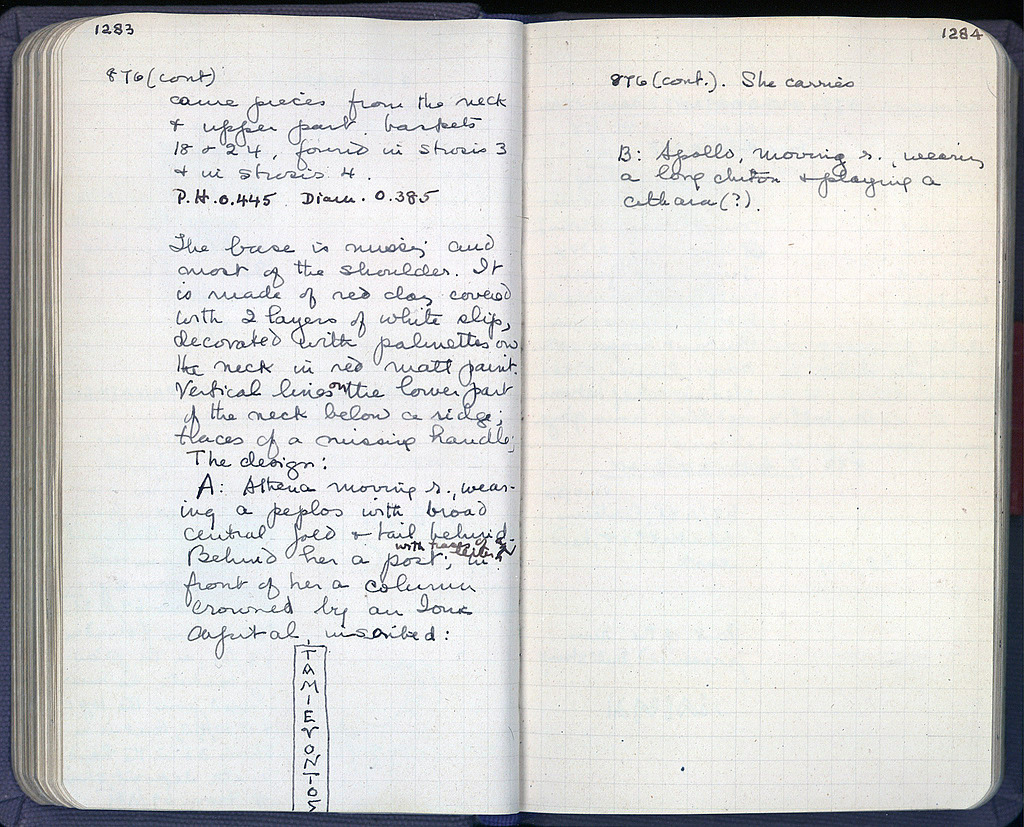 1283
8T6 (cont)
came pieces from the neck
& upper part. baskets
18 & 24, found in strosis 3
& in strosis 4.
P.H. 0.445 Diam. 0.385
The base is missing and
most of the shoulder. It
is made of red clay covered
with 2 layers of white slip,
decorated with palmettes on
the neck in red matt paint.
Vertical lines on the lower part
of the neck below a ridge;
traces of a missing handle;
The design:
A: Athena moving r., wear-
ing a peplos with broad
central fold & tail behind.
with traces of
Behind her a post; in
front of her a column
crowned by an Ionic
capital, inscribed:
ΤΑΜΙΕΥΟΝΤΟΣ
1284
8T6 (cont.). She carries
B: Apollo, moving r., wearing
a long chiton & playing a
cithara (?).